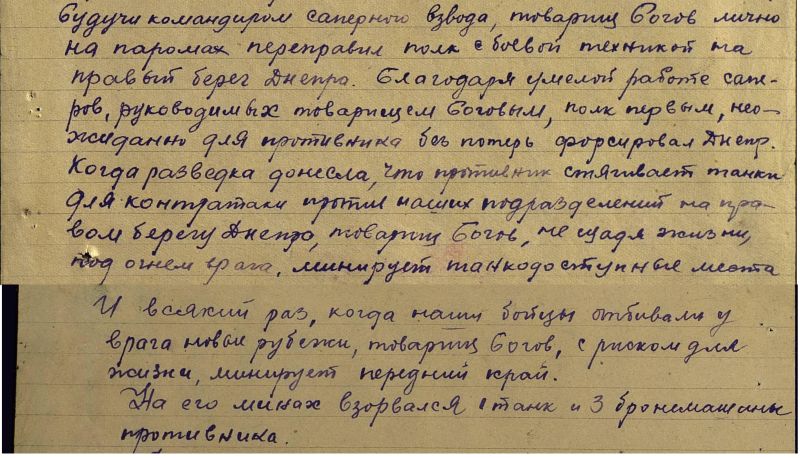 будучи командиром саперного взвода, товарищ Богов лично
на паромах переправил полк с боевой техникой на
правый берег Днепра. Благодаря умелой работе сапе-
ров, руководимых товарищем Боговым, полк первым, нео-
жиданно для противника без потерь форсировал Днепр.
Когда разведка донесла, что противник стягивает танки
для контратаки против наших подразделений на пра-
вом берегу Днепра, товарищ Богов, не щадя жизни,
под огнем врага, минирует танкодоступные места
И всякий раз, когда наши бойцы отбивали у
врага новые рубежи, товарищ Богов, с риском для
жизни, минирует передний край.
На его минах взорвался 1 танк и 3 бронемашины
противника.